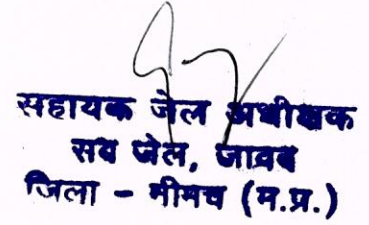 सहायक जेल अधीक्षक
सब जेल, जावद
जिला - नीमच (म.प्र.)